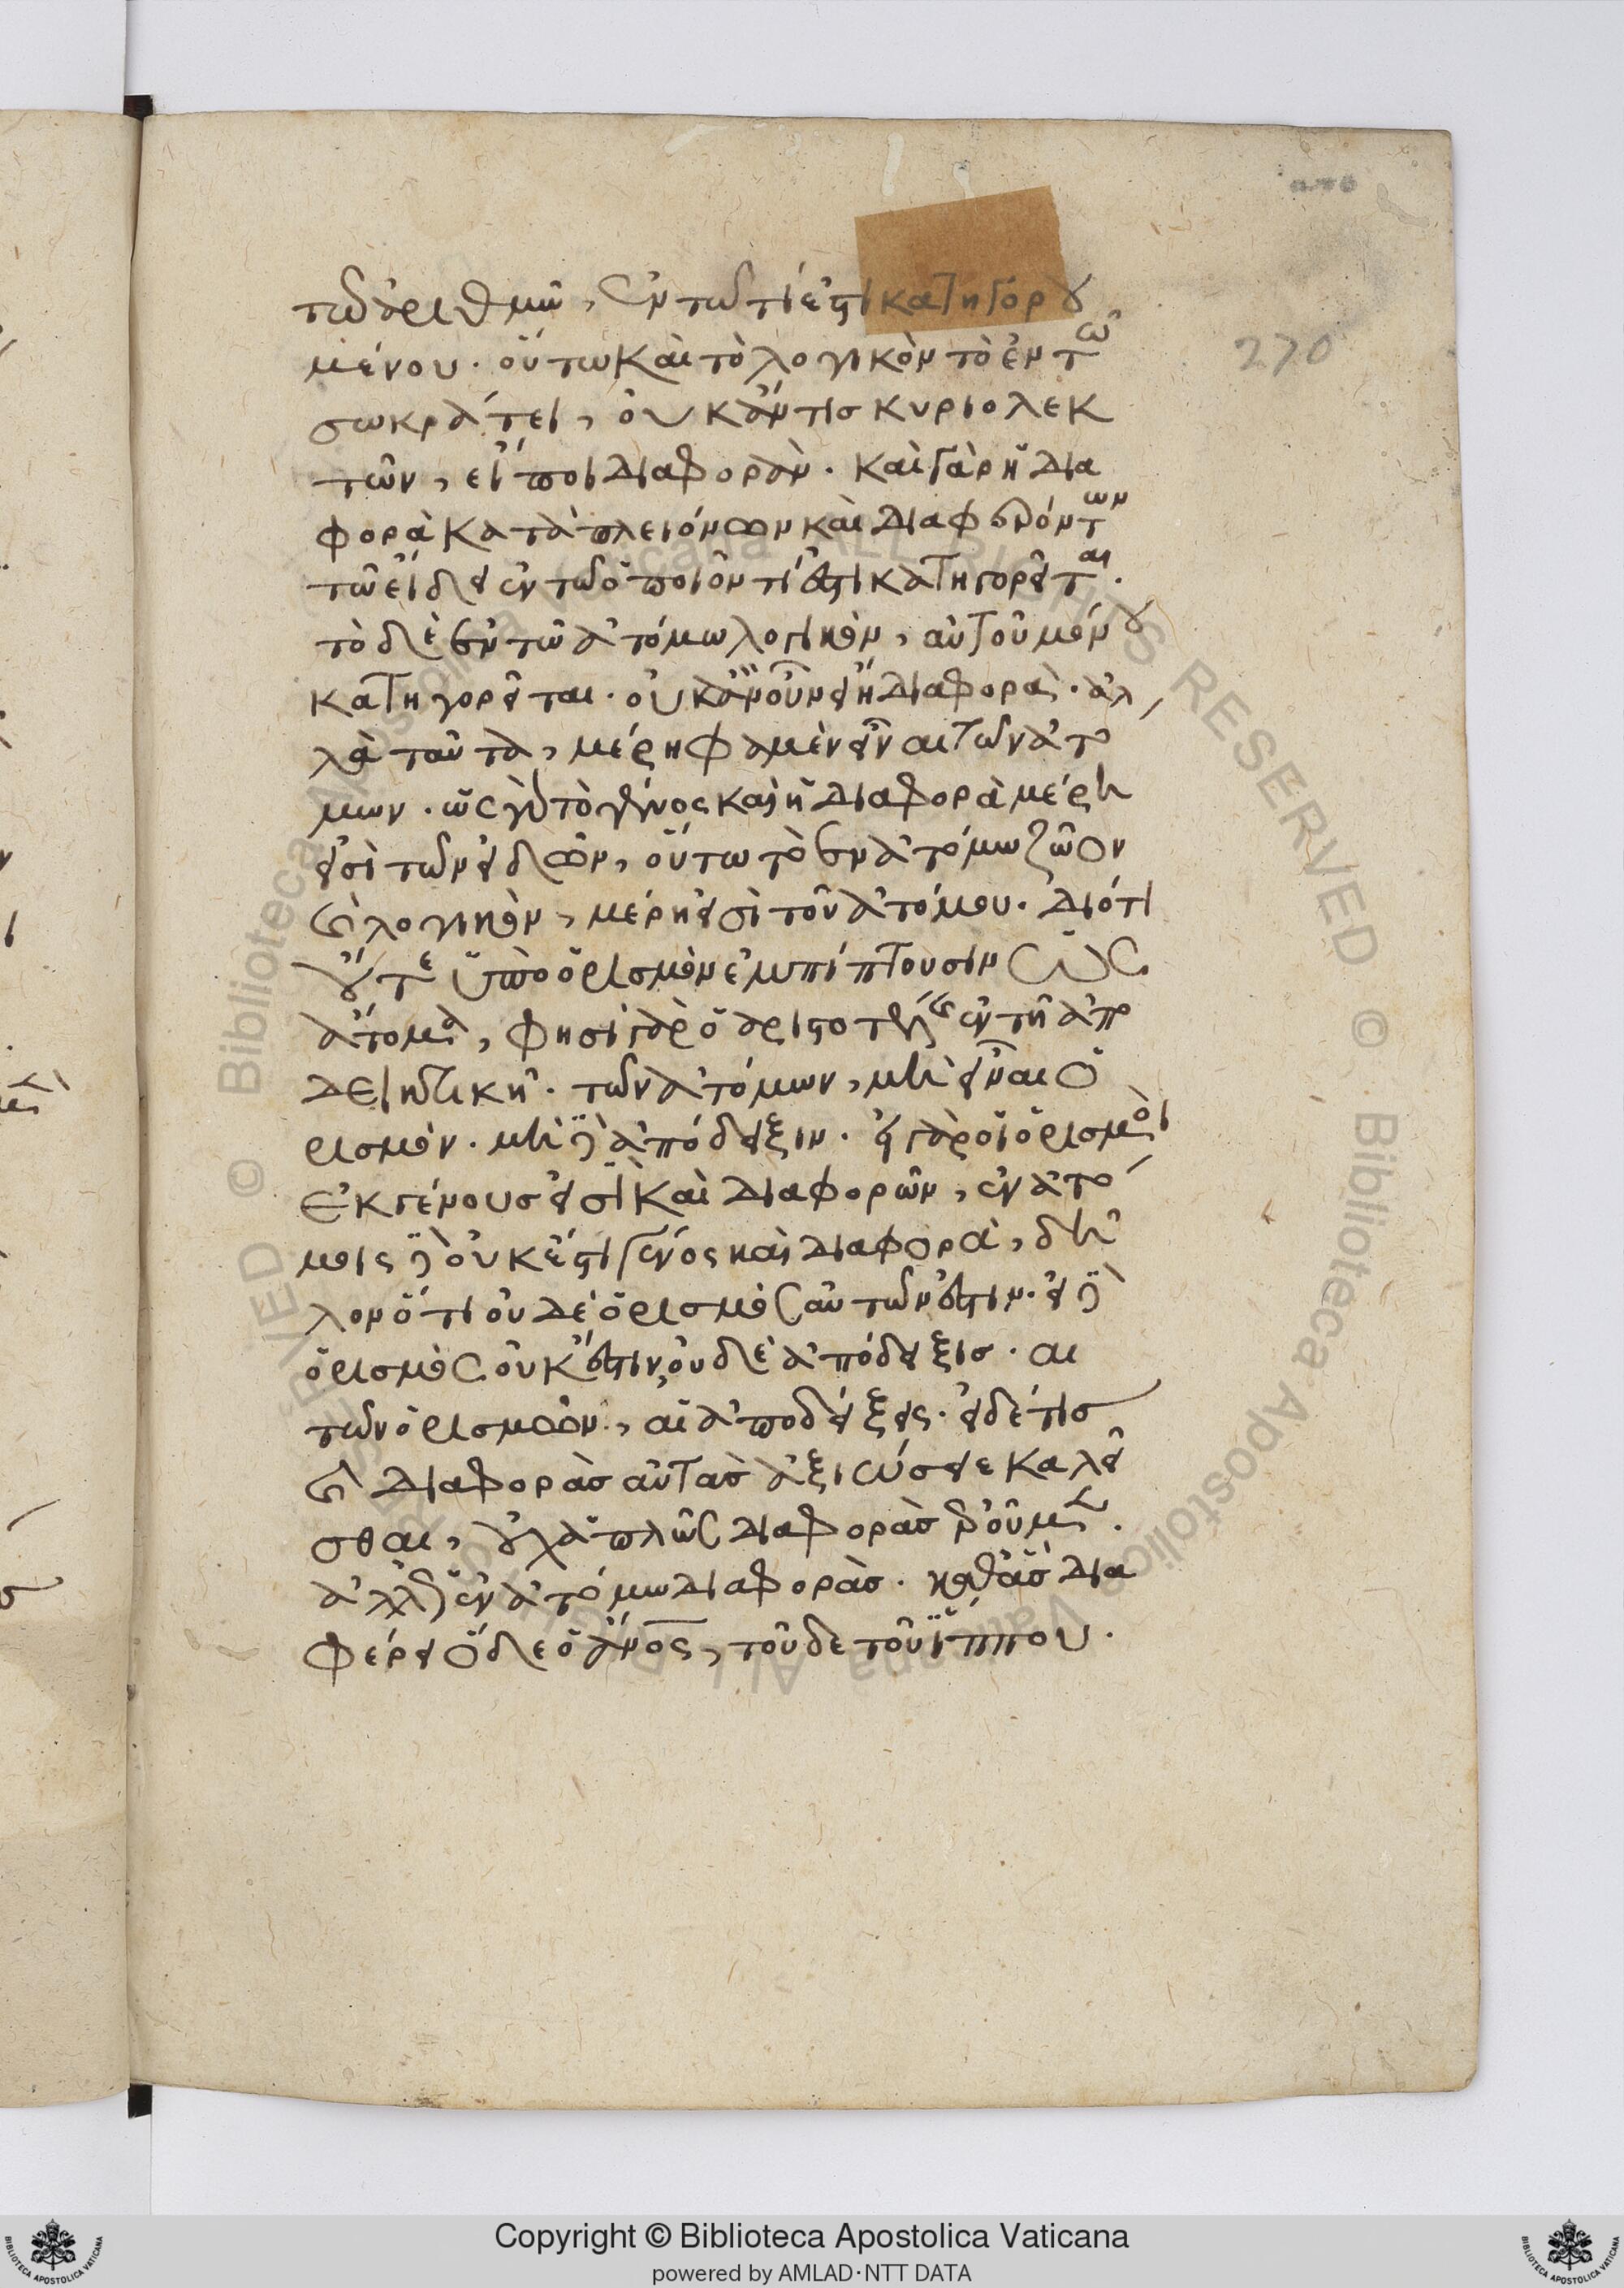 270
τῶ ἀριθμῶ, ἐν τῶ τί ἐστι κατηγορου
μένου. οὕτω καὶ τὸ λογικὸν τὸ ἐν τῶ
σωκράτει, οὐκ ἄν τισ κυριολεκ
τῶν, εἴποι διαφοράν. καὶ γὰρ ἡ δια
φορὰ κατὰ πλειόνων καὶ διαφερόντων
τῶ εἴδει ἐν τῶ ὁποῖον τί ἐστι κατηγορεῖται.
τὸ δὲ ἐν τῶ ἀτόμω λογικὸν, αὐτοῦ μόνου
κατηγορεῖται. οὐκ ἂν οὖν εἴη διαφορά. ἀλ
λὰ ταῦτα, μέρη φαμὲν εἶναι τῶν ἀτό
μων. ὡς γὰρ τὸ γένος καὶ ἡ διαφορὰ μέρη
εἰσὶ τῶν εἰδῶν, οὕτω τὸ ἐν ἀτόμω ζῶον
καὶ λογικὸν, μέρη εἰσὶ τοῦ ἀτόμου. διότι
οὔτε ὑπὸ ὁρισμὸν ἐμπίπτουσιν ὡς
ἄτομα, φησὶ γὰρ ὁ ἀριστοτέλης ἐν τῆ ἀπο
δεικτικῆ. τῶν ἀτόμων, μὴ εἶναι ὁ
ρισμόν. μὴ δὲ ἀπόδειξιν. εἰ γὰρ οἱ ὁρισμοὶ
ἐκ γένουσ εἰσὶ καὶ διαφορῶν, ἐν ἀτό
μοις δὲ οὐκ ἔστι γένος καὶ διαφορά, δῆ
λον ὅτι οὐδὲ ὁρισμὸς αὐτῶν ἐστιν. εἰ δὲ
ὁρισμὸς οὐκ ἔστιν, οὐδὲ ἀπόδειξισ. αι
τῶν ὁρισμῶν, αἱ ἀποδείξεις. εἰ δέ τισ
καὶ διαφορὰσ αὐτὰσ ἀξιώσειε καλεῖ
σθαι, οὐχ ἁπλῶς διαφορὰσ ἐροῦμεν.
ἀλλὰ ἐν ἀτόμω διαφοράσ. καθ' ἃσ δια
φέρει ὅδε ὁ ἄνος, τοῦδε τοῦ ἵππου.
Copyright © Biblioteca Apostolica Vaticana
powered by AMLAD·NTT DATA